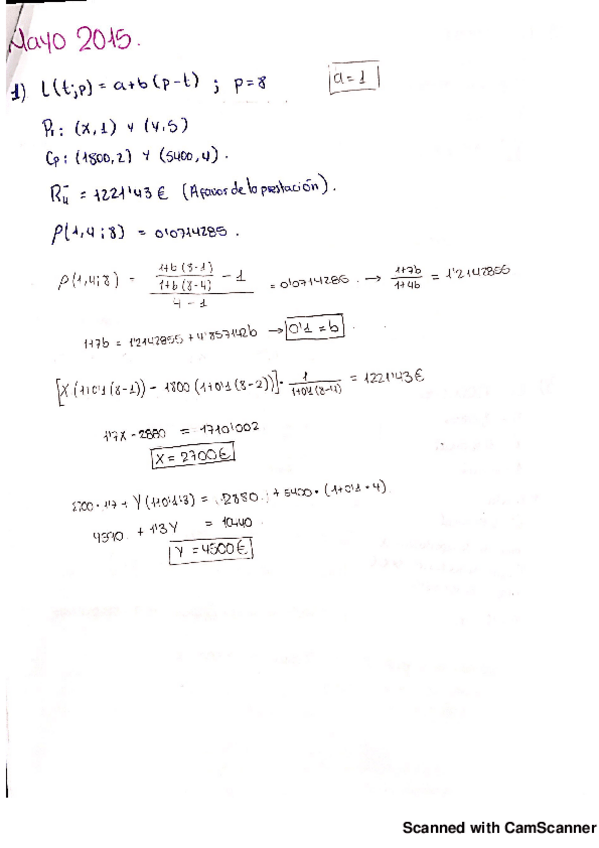 Mayo 2015.
1) L(t;p) = a+b(p-t) ; p=8 a=1
Pr: (X,1) y (Y,5)
Cp: (1800,2) y (5400,4).
R₄⁻ = 1221'43€ (A favor de la prestación).
ρ(1,4;8) = 0'0714285.
ρ(1,4;8) = ((1+b(8-1))/(1+b(8-4)) - 1)/(4-1) = 0'0714285. → (1+7b)/(1+4b) = 1'2142855
1+7b = 1'2142855 + 4'857142b → 0'1 = b.
[X(1+0'1(8-1)) - 1800(1+0'1(8-2))] · 1/(1+0'1(8-4)) = 1221'43€
1'7X - 2880 = 1710'002
X = 2700€
2700·1'7 + Y(1+0'1·3) = 2880. + 5400·(1+0'1·4)
4590. + 1'3Y = 10440.
Y = 4500€
Scanned with CamScanner